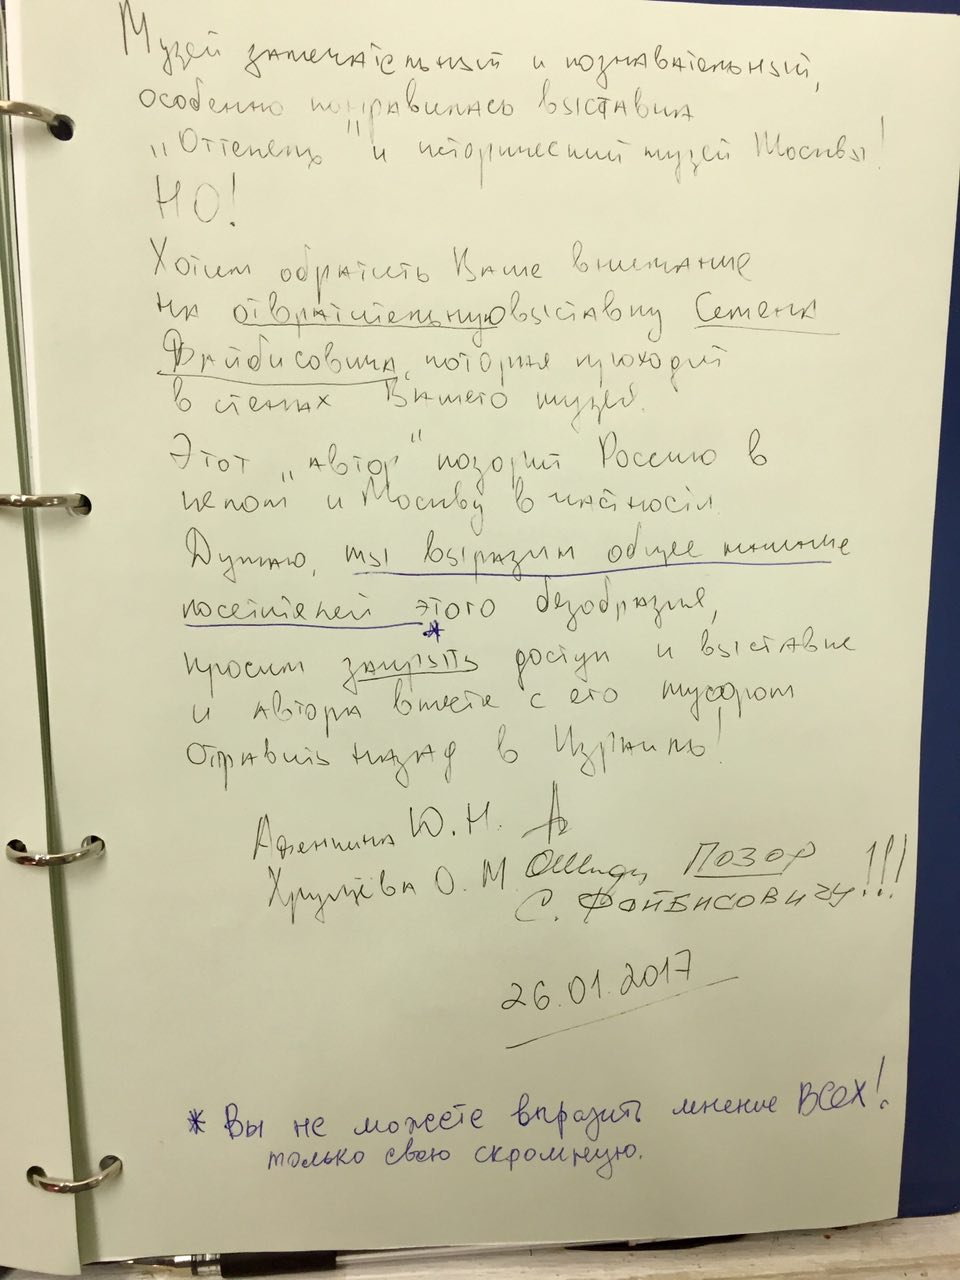 Музей замечательный и познавательный,
особенно понравилась выставка
„Оттепель" и исторический музей Москвы!
НО!
Хотим обратить Ваше внимание
на отвратительную выставку Семена
Файбисовича, которая проходит
в стенах Вашего музея.
Этот „автор" позорит Россию в
целом и Москву в частности.
Думаю, мы выразим общее мнение
посетителей этого безобразия,
*
просим закрыть доступ к выставке
и автора вместе с его мусором
отправить назад в Израиль!
Ю. Н.
Хрущёва О. М. ПОЗОР
С. ФАЙБИСОВИЧУ!!!
26.01.2017
* Вы не можете выразить мнение ВСЕХ!
только свою скромную.